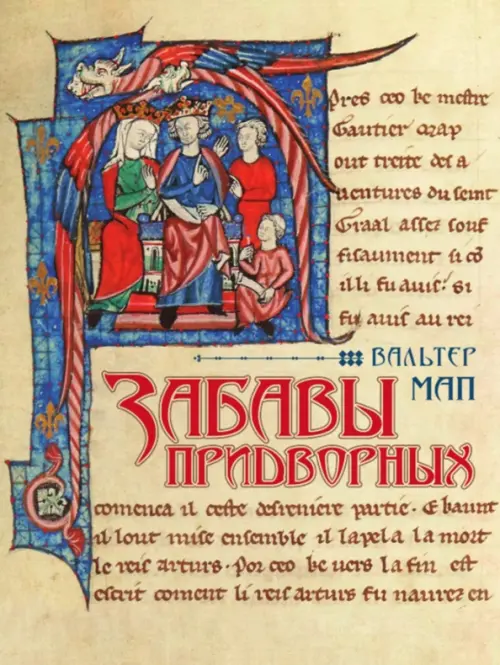 pres ceo ke mestre
Gautier map
out treite des a
uentures du seint
Graal assez souf
fisaument si cō
il li fu auis. si
fu auis au rei
ВАЛЬТЕР
МАП
ЗАБАВЫ
ПРИДВОРНЫХ
comenca il ceste desreniere partie. E kaunt
il lout mise ensemble il lapela la mort
le reis arturs. Por ceo ke uers la fin est
escrit coment li reis arturs fu naurez en